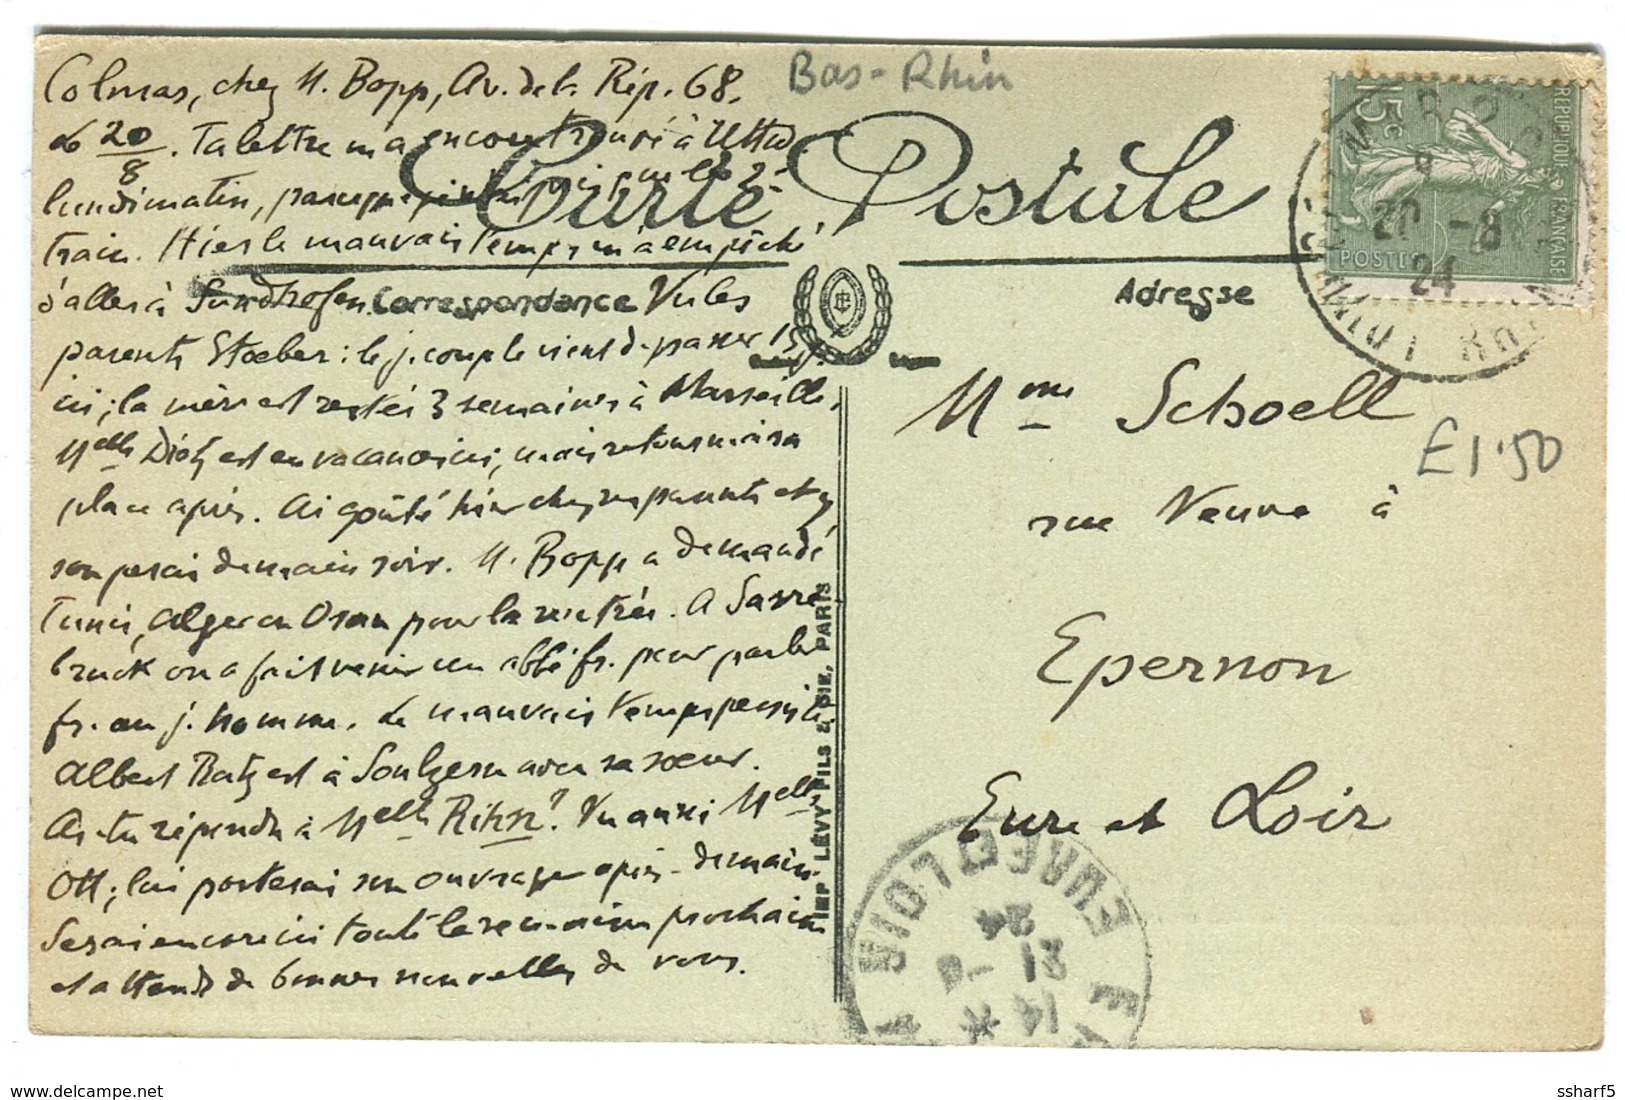 Colmar, chez M. Bopp, Av. de la Rép. 68.
Bas-Rhin
Le 20/8. Ta lettre m'a encore trouvé à
lundi matin, parceque
train. Hier le mauvais temps m'a empêché
d'aller à Sundhofen. Vu les
parents Stoeber: le j. couple vient d. passer 15 j.
ici; la mère est restée 3 semaines à Marseille.
Melle Diotz est en vacances ici, mais retourne à sa
place après. Ai goûté hier chez mes parents et y
souperai demain soir. M. Bopp a demandé
Tunis, Alger ou Oran pour la rentrée. A Sarre-
bruck on a fait venir un abbé fr. pour parler
fr. au j. homme. Le mauvais temps persiste.
Albert Ratz est à Soulzeren avec sa soeur.
As-tu répondu à Melle Rihn? Vu aussi Melle
Ott; lui porterai son ouvrage après-demain.
Serai encore ici toute la semaine prochaine
et attends de bonnes nouvelles de vous.
Carte Postale
Correspondance
Adresse
IMP LÉVY FILS & CIE, PARIS
RÉPUBLIQUE FRANÇAISE
15c
POSTES
20 -8
24
HAUT RHIN
Mme Schoell
£1.50
rue Neuve à
Epernon
Eure et Loir
EURE ET LOIR
14 *
21 -8
24
ssharf5